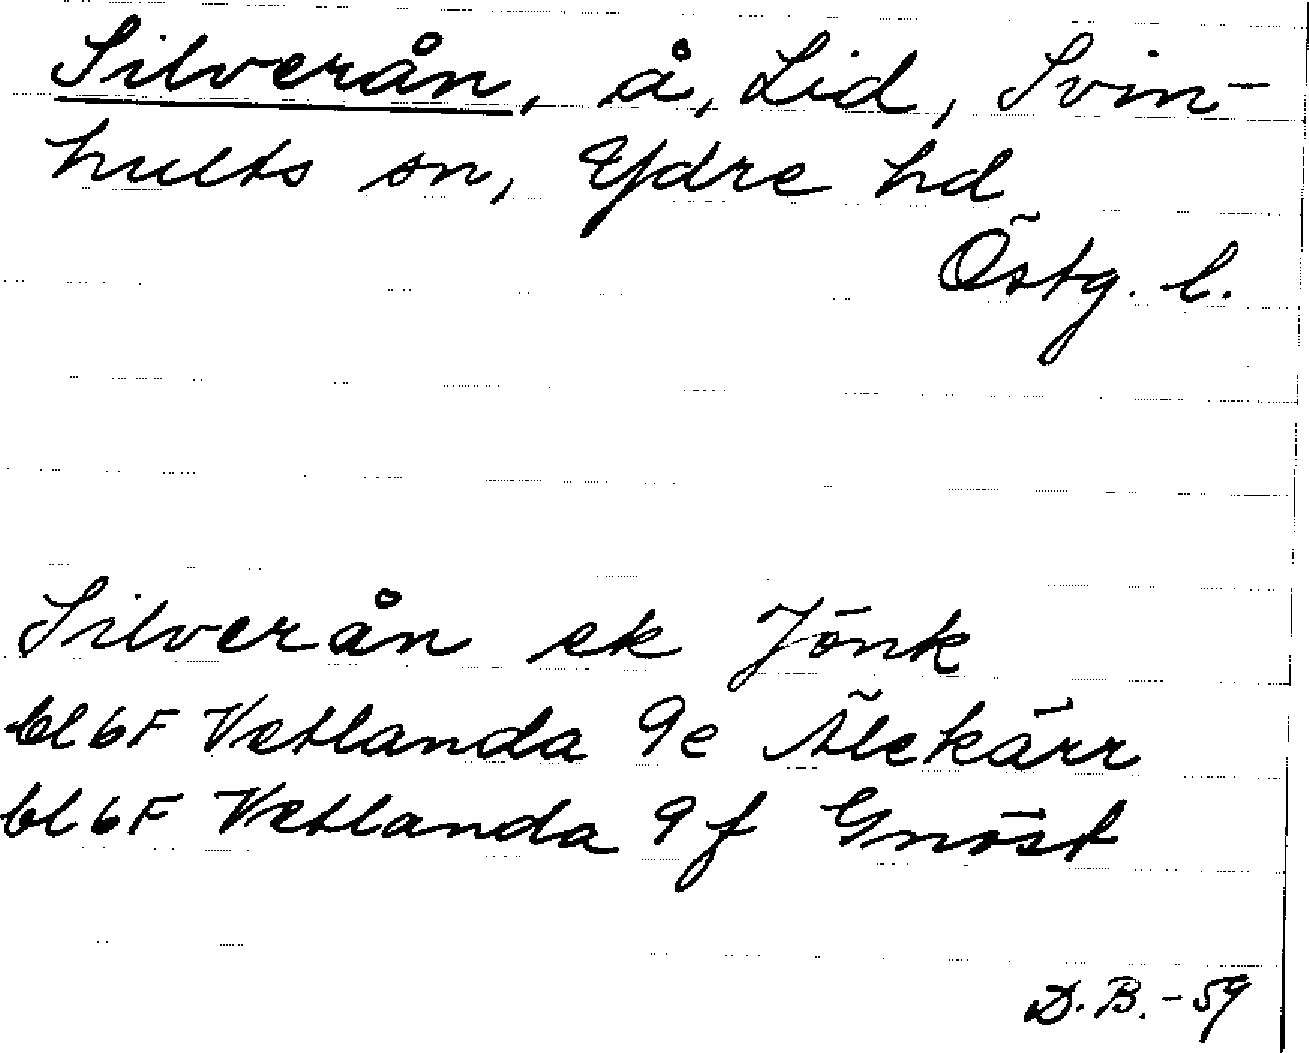 Silverån, å, Lid, Svin-
hults sn, Ydre hd
Östg. l.
Silverån ek Jönk
bl 6F Vetlanda 9e Älekärr
bl 6F Vetlanda 9f Gnöst
D.B. -59